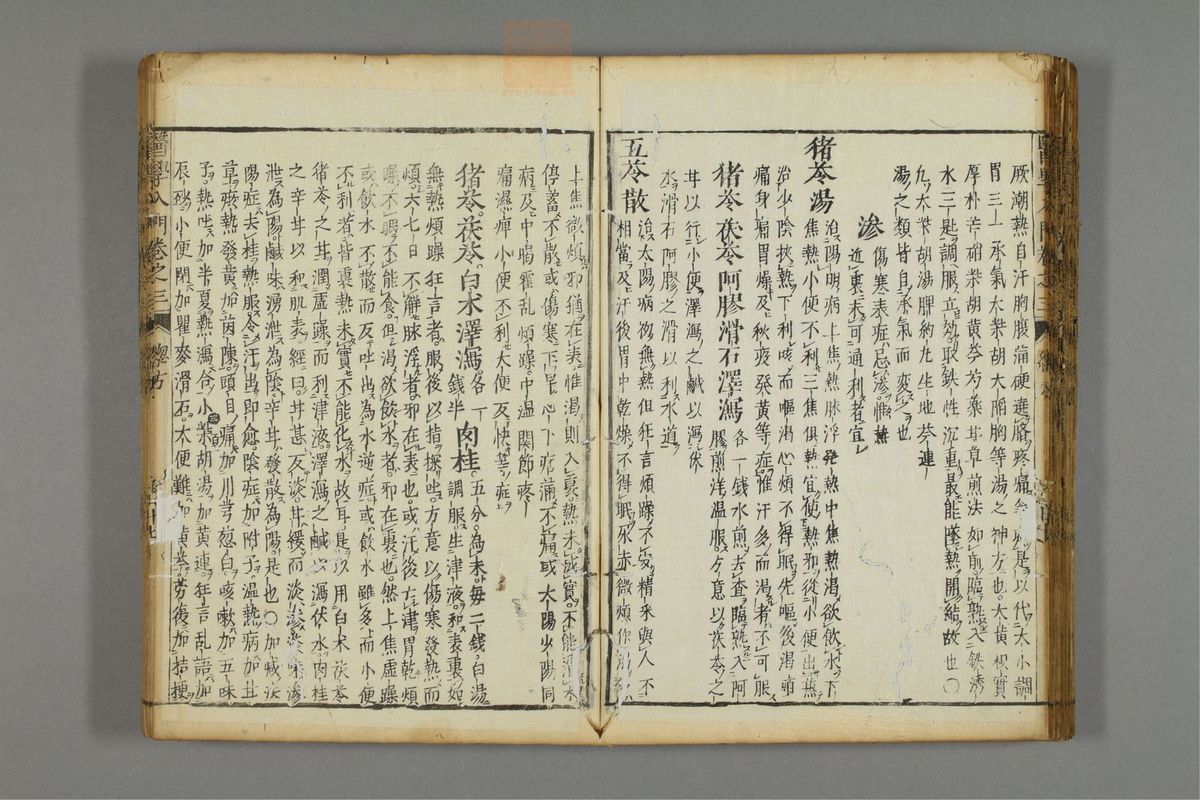 厥潮熱自汗胸腹滿硬遶臍疼痛是以代大小調
胃三承氣大柴胡大陷胸等湯之神方也大黃枳實
厚朴芒硝柴胡黃芩芍藥甘草煎法如前臨熟入鐵銹
水三是調服立効取鐵性沉重最能墜熱開結故也〇
九大柴胡湯脾約丸生地芩連
湯之類皆自承氣而變也
滲
傷寒表症忌滲惟熱
近裏未可通利者宜
猪苓湯
治陽明病上焦熱脉浮發熱中焦熱渴欲飲水下
焦熱小便不利三焦俱熱宜使熱邪從小便出兼
治少陰挾熱下利咳而嘔渴心煩不得眠先嘔後渴
痛身痛胃燥及秋疫發黃等症惟汗多而渴者不可服
猪苓茯苓阿膠滑石澤瀉
各一錢水煎去査臨熟入阿
膠煎洋温服仝意以茯苓之
甘以行小便澤瀉之鹹以瀉伏
水滑石阿膠之滑以利水道
五苓散
治太陽病初無熱但狂言煩躁不安精釆與人不
相當及汗後胃中乾燥不得眠死赤微煩
上焦微煩邪猶在表惟渴則入裏熱未實不能消水
停蓄不散或傷寒下早心下痞滿不痛或太陽少陽同
病及中暍霍乱煩躁中温關節疼
痛濕痺小便不利大便反快等症
猪苓茯苓白术澤瀉各一
錢半
肉桂五分爲末毎二錢白湯
調服生津液和表裏如
無熱煩躁狂言者服後以指探吐方意以傷寒發熱而
煩六七日不觧脉浮者邪在表也或汗後亡津胃乾煩
躁不眠不能食但渴欲飲水者邪在裏也然上焦虛躁
或飲水不散而反吐出爲水逆症或飲水雖多而小便
不利者皆裏熱未實不能化水故耳是以用白术茯苓
猪苓之甘潤虛躁而利津液澤瀉之鹹以瀉伏水肉桂
之辛甘以和肌表經曰甘甚反淡甘緩而淡滲
泄爲陽鹹味湧泄爲陰辛甘發散爲陽是也〇加減法
陽症去桂熱服令汗出即愈陰症加附子温熱病加甘
草痎熱發黃加茵陳頭目痛加川芎葱白咳嗽加五味
子熱吐加半夏熱瀉合小柴胡湯加黃連狂言乱語加
辰砂小便閉加瞿麥滑石大便難加黃芩勞後加桔梗
醫學入門卷之三